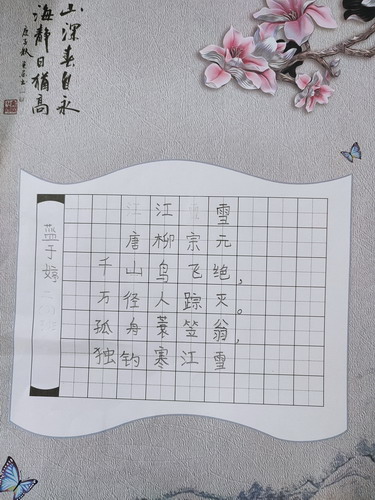 山深春自永
海静日猶高
庚子秋
蓝子
江雪
唐柳宗元
千山鸟飞绝，
万径人踪灭。
孤舟蓑笠翁，
独钓寒江雪